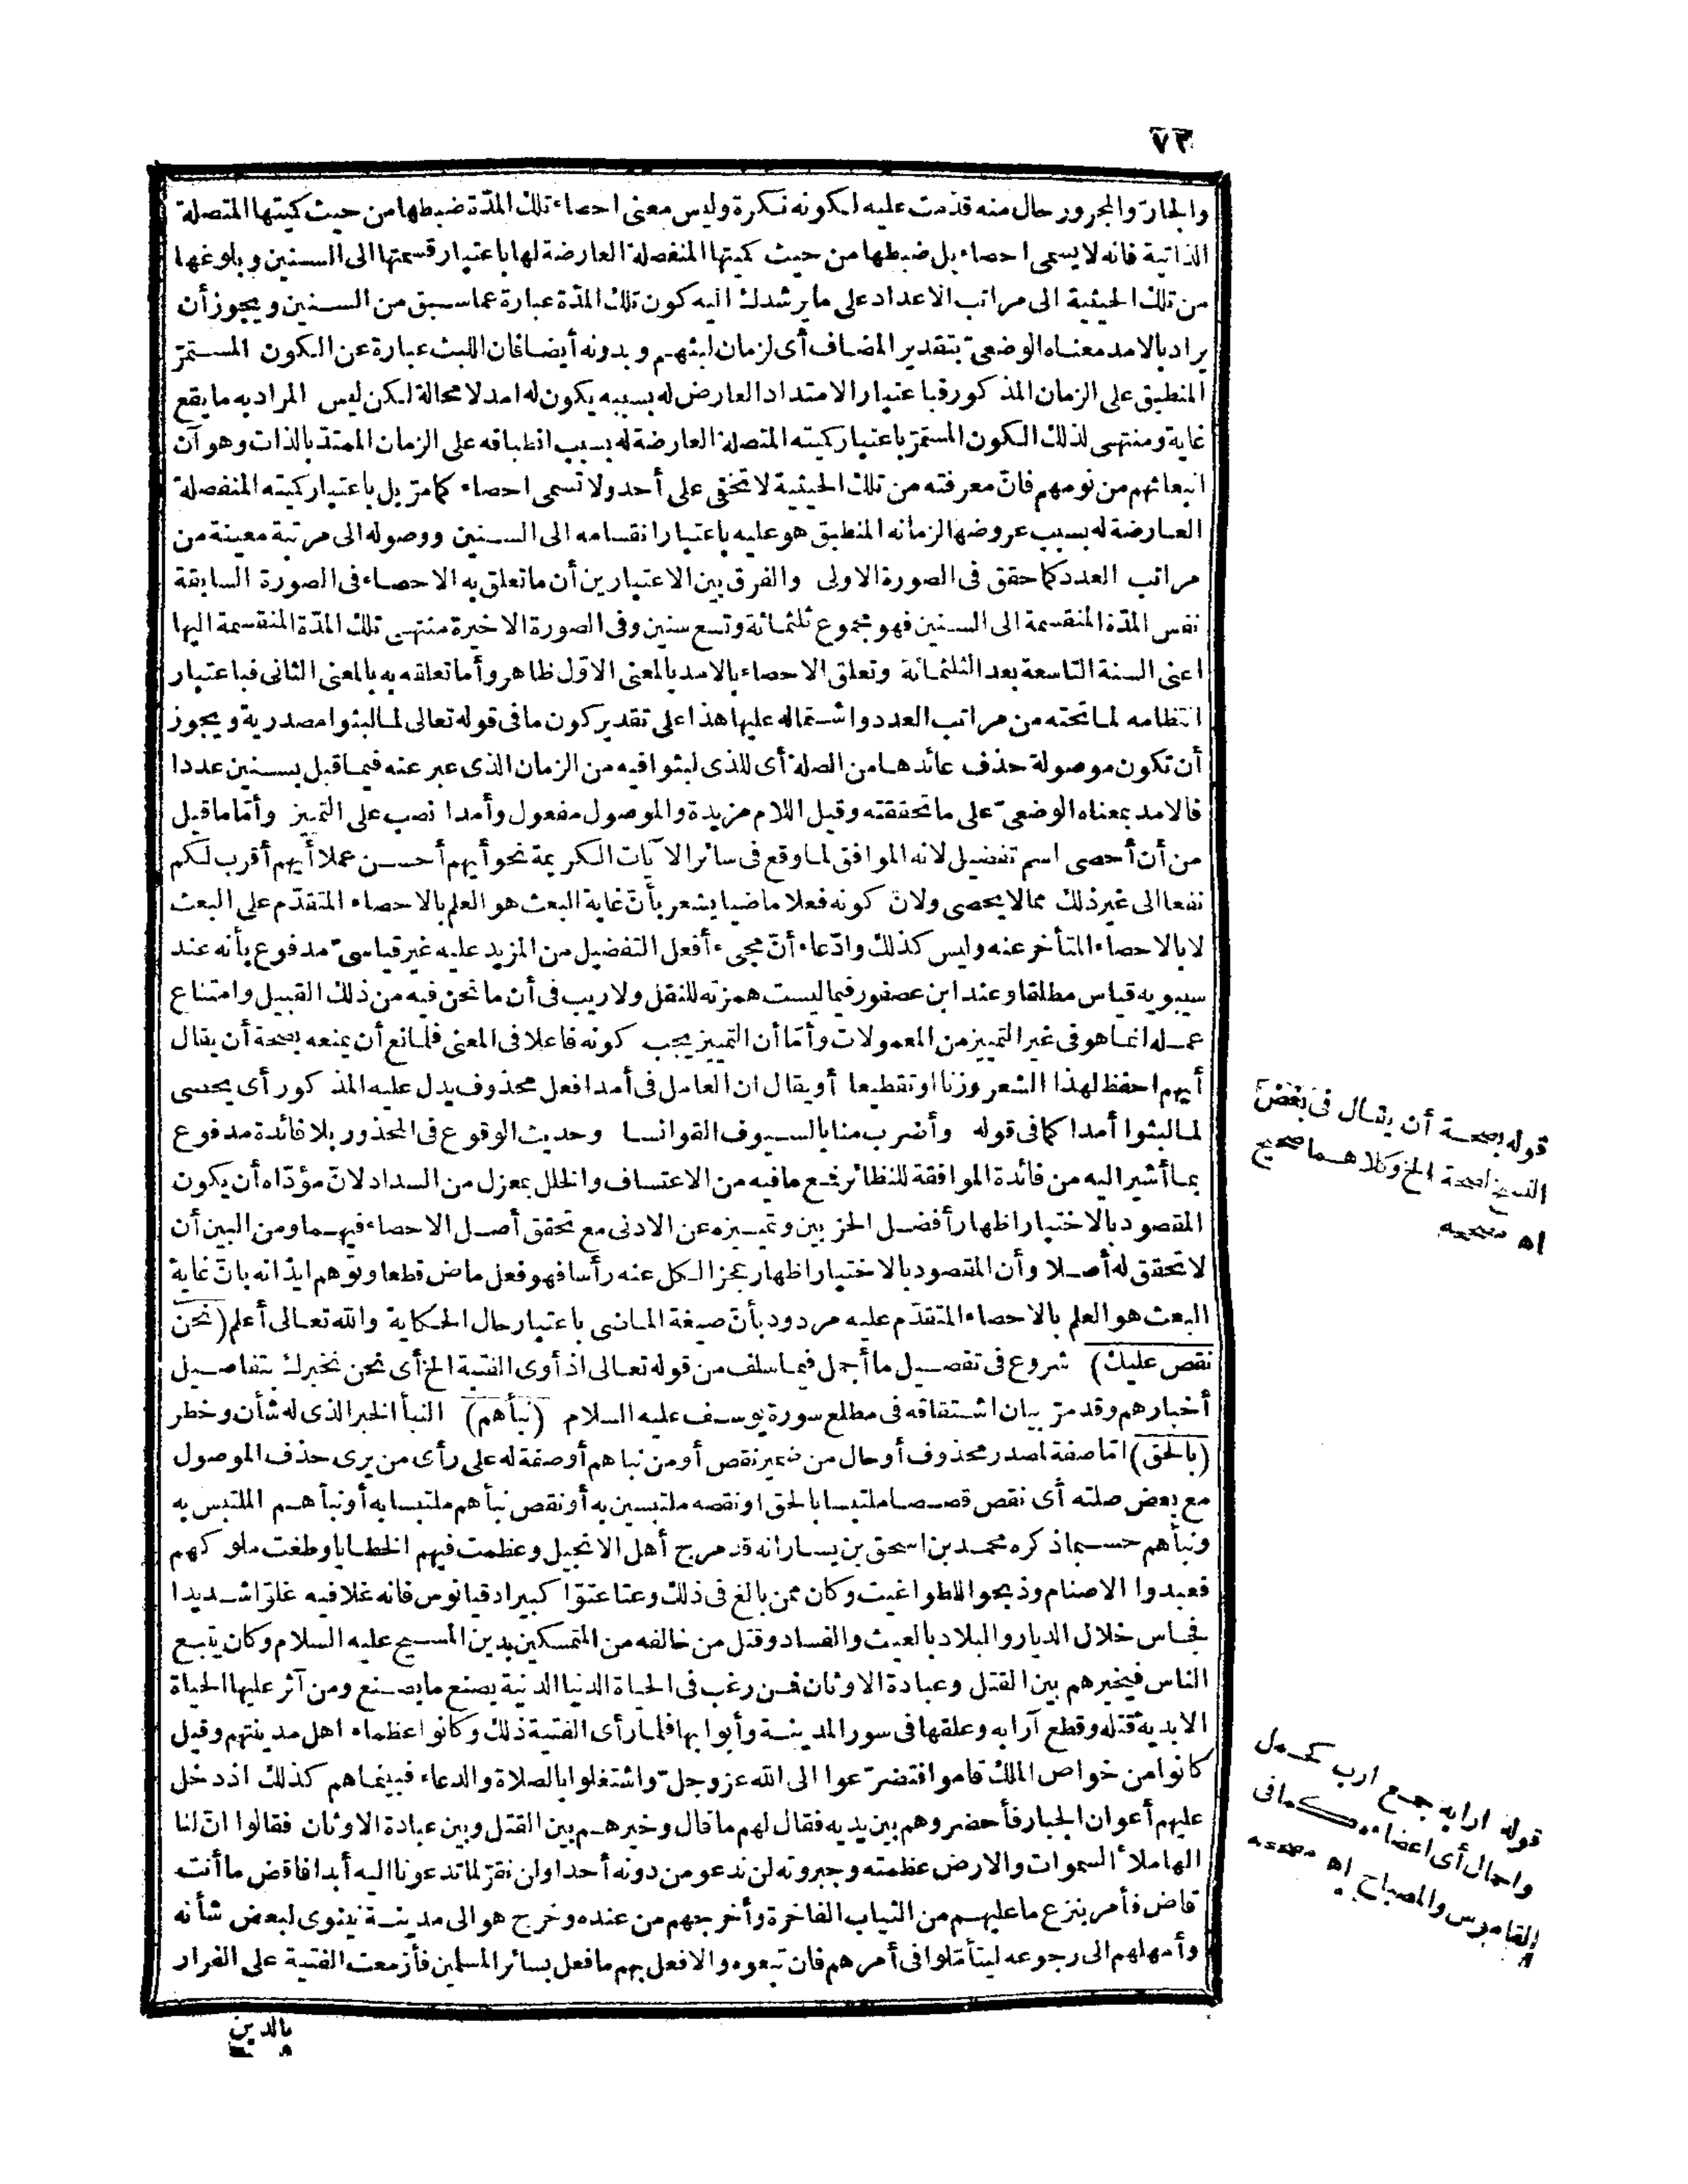 ٧٣
والجارّ والمجرور حال منه قدّمت عليه لكونه نكرة وليس معنى احصاء تلك المدّة ضبطها من حيث كميتها المتصلة
الذاتية فانه لا يسمى احصاء بل ضبطها من حيث كميتها المنفصلة العارضة لها باعتبار قسمتها الى السنين وبلوغها
من تلك الحيثية الى مراتب الاعداد على ما يرشدك اليه كون تلك المدّة عبارة عما سبق من السنين ويجوز أن
يراد بالامد معناه الوضعىّ بتقدير المضاف أى لزمان لبثهم وبدونه أيضا فان اللبث عبارة عن الكون المستمرّ
المنطبق على الزمان المذكور فباعتبار الامتداد العارض له بسببه يكون له امد لا محالة لكن ليس المراد به ما يقع
غاية ومنتهى لذلك الكون المستمرّ باعتبار كميته المتصلة العارضة له بسبب انطباقه على الزمان الممتدّ بالذات وهو آن
انبعاثهم من نومهم فانّ معرفته من تلك الحيثية لا تخفى على أحد ولا تسمى احصاء كما مرّ بل باعتبار كميته المنفصلة
العارضة له بسبب عروضها لزمانه المنطبق هو عليه باعتبار انقسامه الى السنين ووصوله الى مرتبة معينة من
مراتب العدد كما حقق فى الصورة الاولى والفرق بين الاعتبارين أن ما تعلق به الاحصاء فى الصورة السابقة
نفس المدّة المنقسمة الى السنين فهو مجموع ثلثمائة وتسع سنين وفى الصورة الاخيرة منتهى تلك المدّة المنقسمة اليها
اعنى السنة التاسعة بعد الثلثمائة وتعلق الاحصاء بالامد بالمعنى الاوّل ظاهر وأما تعلقه به بالمعنى الثانى فباعتبار
انتظامه لما تحته من مراتب العدد واشتماله عليها هذا على تقدير كون ما فى قوله تعالى لما لبثوا مصدرية ويجوز
أن تكون موصولة حذف عائدها من الصلة أى للذى لبثوا فيه من الزمان الذى عبر عنه فيما قبل بسنين عددا
فالامد بمعناه الوضعىّ على ما تحققته وقيل اللام مزيدة والموصول مفعول وأمدا نصب على التمييز وأمّا ما قيل
من أن أحصى اسم تفضيل لانه الموافق لما وقع فى سائر الآيات الكريمة نحو أيهم أحسن عملا أيهم أقرب لكم
نفعا الى غير ذلك مما لا يحصى ولانّ كونه فعلا ماضيا يشعر بأنّ غاية البعث هو العلم بالاحصاء المتقدّم على البعث
لا بالاحصاء المتأخر عنه وليس كذلك وادّعاء أنّ مجىء أفعل التفضيل من المزيد عليه غير قياسىّ مدفوع بأنه عند
سيبويه قياس مطلقا وعند ابن عصفور فيما ليست همزته للنقل ولا ريب فى أن ما نحن فيه من ذلك القبيل وامتناع
عمله انما هو فى غير التمييز من المعمولات وأمّا أن التمييز يجب كونه فاعلا فى المعنى فلمانع أن يمنعه بصحة أن يقال
أيهم احفظ لهذا الشعر وزنا او تقطيعا أو يقال ان العامل فى أمدا فعل محذوف يدل عليه المذكور أى يحصى
لما لبثوا أمدا كما فى قوله وأضرب منا بالسيوف القوانسا وحديث الوقوع فى المحذور بلا فائدة مدفوع
بما أشير اليه من فائدة الموافقة للنظائر فمع ما فيه من الاعتساف والخلل بمعزل من السداد لانّ مؤدّاه أن يكون
المقصود بالاختبار اظهار أفضل الحزبين وتمييزه عن الادنى مع تحقق أصل الاحصاء فيهما ومن البين أن
لا تحقق له أصلا وأن المقصود بالاختبار اظهار عجز الكل عنه رأسا فهو فعل ماض قطعا وتوهم ايذانه بانّ غاية
البعث هو العلم بالاحصاء المتقدّم عليه مردود بأنّ صيغة الماضى باعتبار حال الحكاية والله تعالى أعلم (نحن
نقص عليك) شروع فى تفصيل ما أجمل فيما سلف من قوله تعالى اذ أوى الفتية الخ أى نحن نخبرك بتفاصيل
أخبارهم وقد مرّ بيان اشتقاقه فى مطلع سورة يوسف عليه السلام (نبأهم) النبأ الخبر الذى له شأن وخطر
(بالحق) امّا صفة لمصدر محذوف أو حال من ضمير نقص أو من نباهم أو صفة له على رأى من يرى حذف الموصول
مع بعض صلته أى نقص قصصا ملتبسا بالحق او نقصه ملتبسين به أو نقص نبأهم ملتبسا به أو نبأهم الملتبس به
ونبأهم حسبما ذكره محمد بن اسحق بن يسار انه قد مرج أهل الانجيل وعظمت فيهم الخطايا وطغت ملوكهم
فعبدوا الاصنام وذبحوا للطواغيت وكان ممن بالغ فى ذلك وعتا عتوّا كبيرا دقيانوس فانه غلا فيه غلوّا شديدا
فجاس خلال الديار والبلاد بالعيث والفساد وقتل من خالفه من المتمسكين بدين المسيح عليه السلام وكان يتبع
الناس فيخيرهم بين القتل وعبادة الاوثان فمن رغب فى الحياة الدنيا الدنية يصنع ما يصنع ومن آثر عليها الحياة
الابدية قتله وقطع آرابه وعلقها فى سور المدينة وأبوابها فلما رأى الفتية ذلك وكانوا عظماء اهل مدينتهم وقيل
كانوا من خواص الملك قاموا فتضرّعوا الى الله عز وجلّ واشتغلوا بالصلاة والدعاء فبينما هم كذلك اذ دخل
عليهم أعوان الجبار فأحضروهم بين يديه فقال لهم ما قال وخيرهم بين القتل وبين عبادة الاوثان فقالوا انّ لنا
الها ملأ السموات والارض عظمته وجبروته لن ندعو من دونه أحدا ولن نقرّ لما تدعونا اليه أبدا فاقض ما أنت
قاض فأمر بنزع ما عليهم من الثياب الفاخرة وأخرجهم من عنده وخرج هو الى مدينة نينوى لبعض شأنه
وأمهلهم الى رجوعه ليتأمّلوا فى أمرهم فان تبعوه والا فعل بهم ما فعل بسائر المسلمين فأزمعت الفتية على الفرار
بالدين
قوله بصحة أن يقال فى بعض
النسخ لصحة الخ وكلاهما صحيح
اه مصححه
قوله ارابه جمع ارب كحمل
واحمال أى اعضائه كما فى
القاموس والمصباح اه مصححه